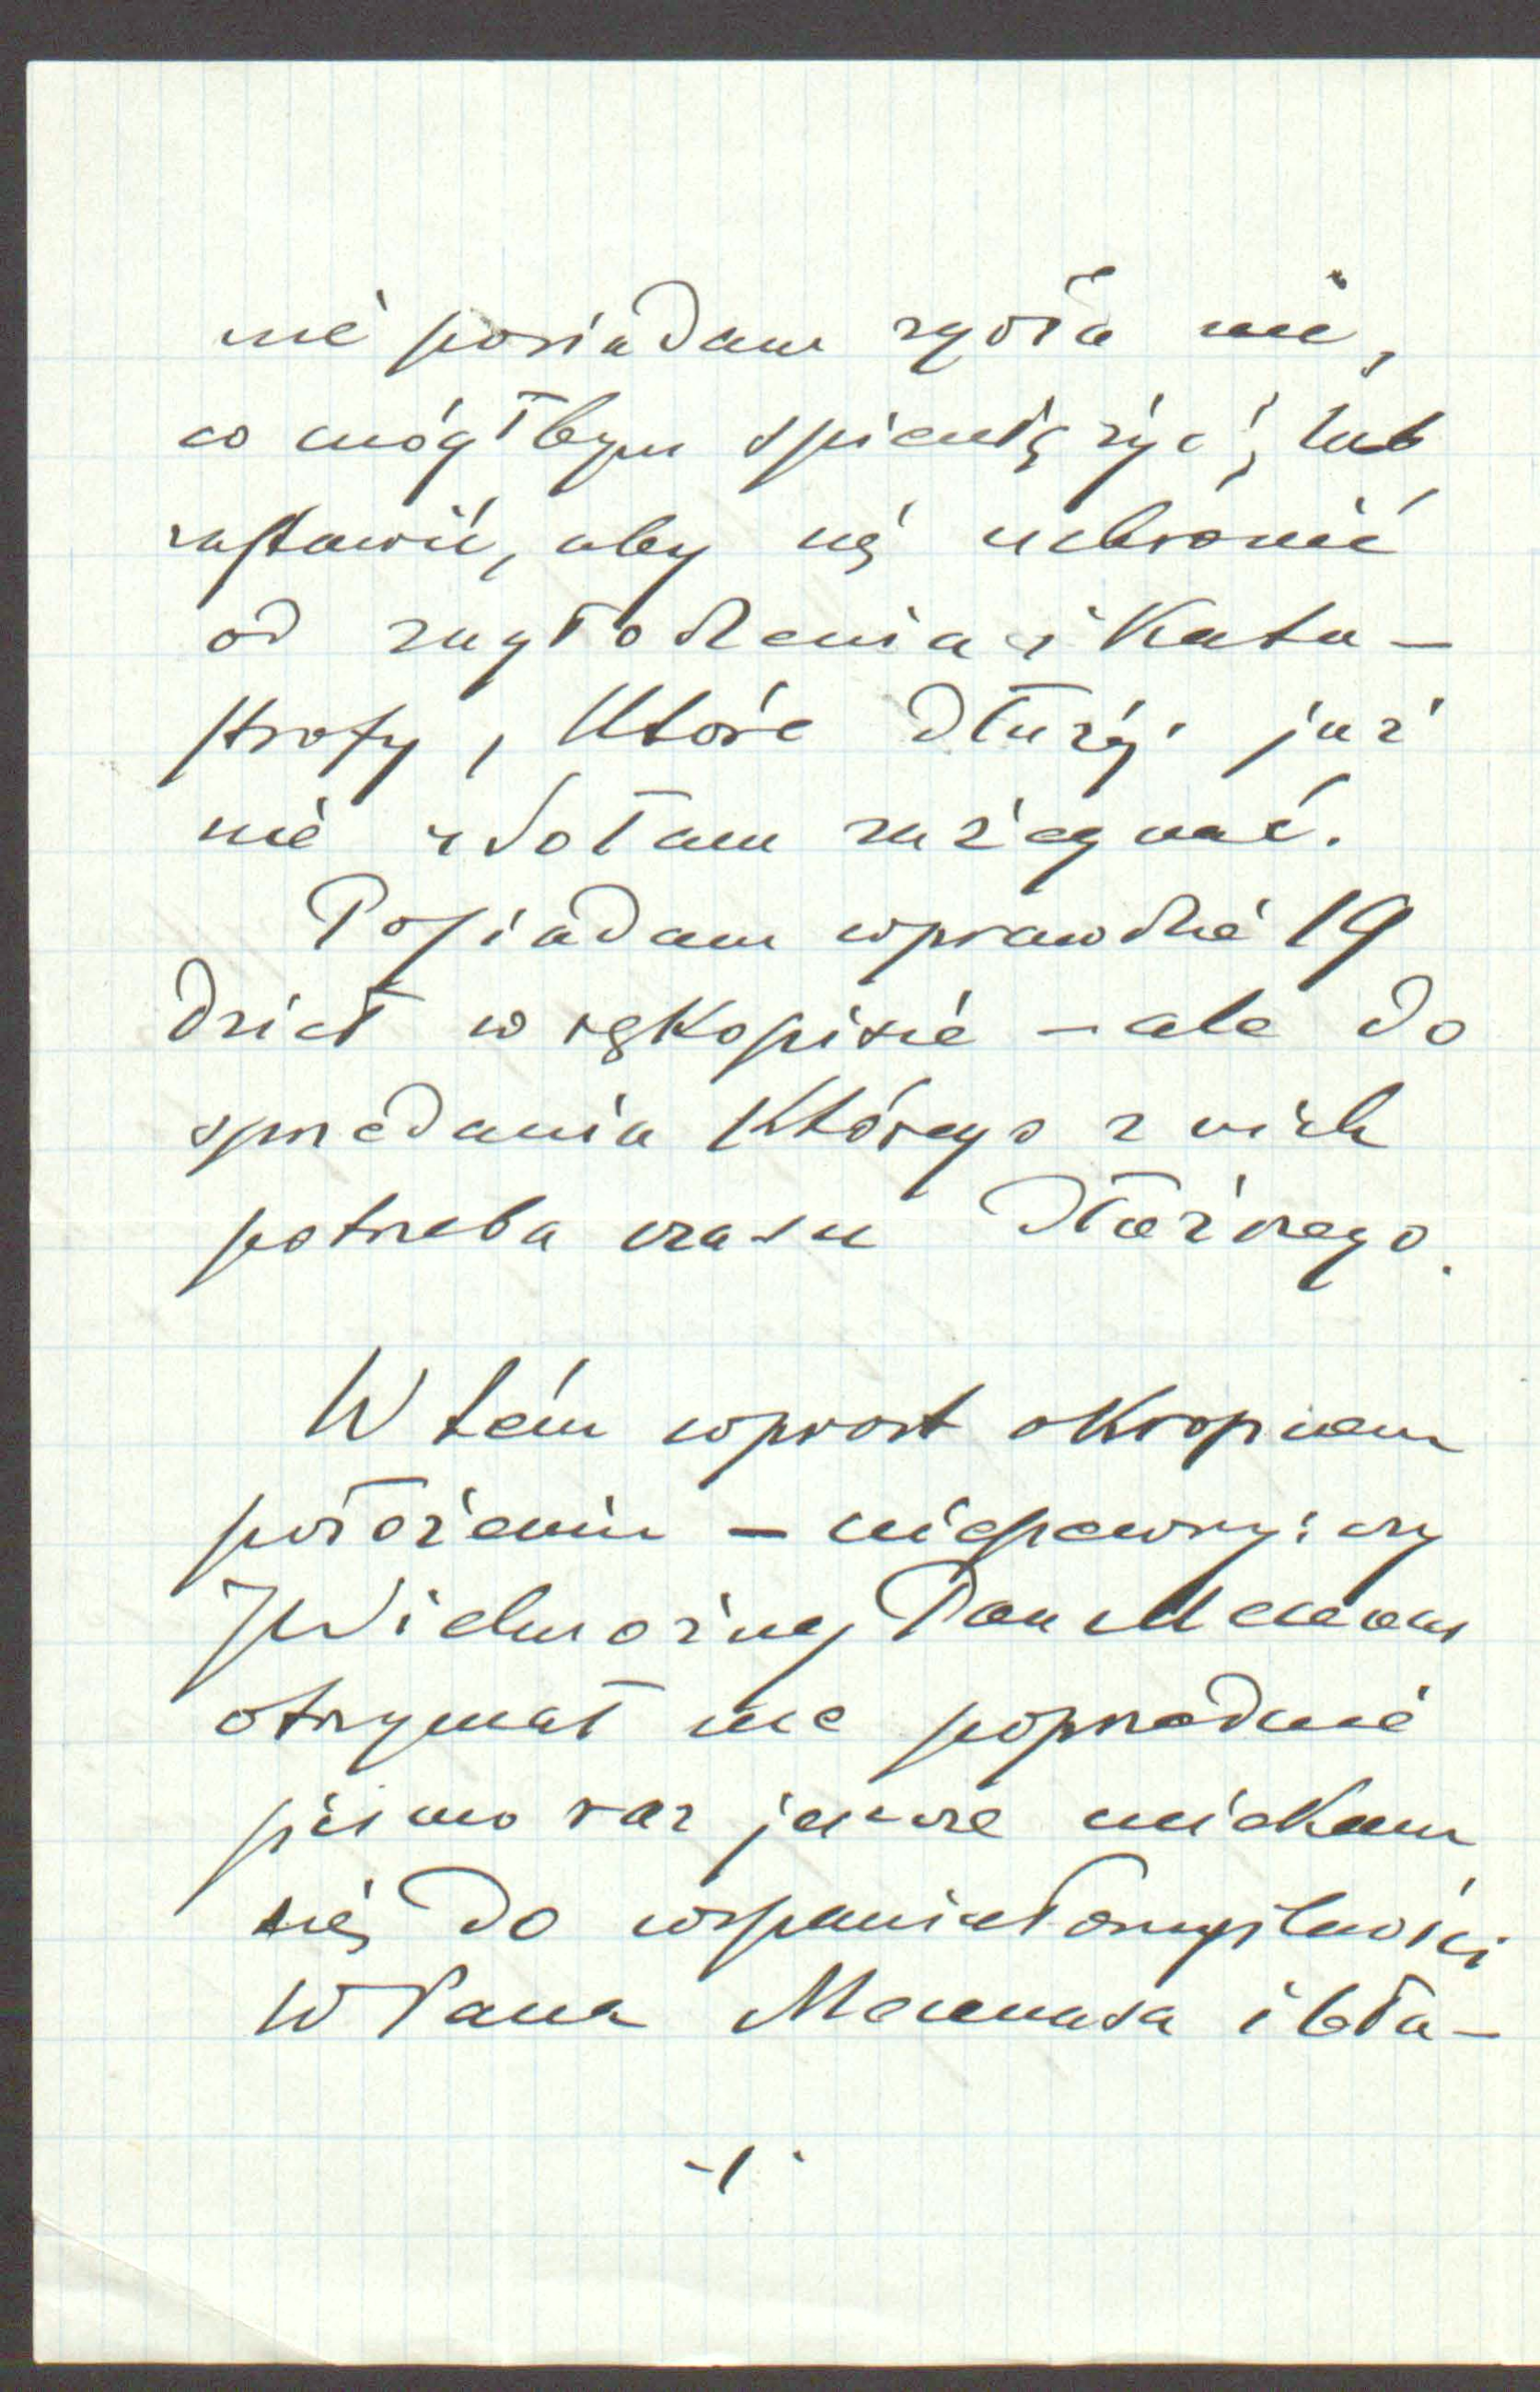 nie posiadam zgoła nic,
co mógłbym spieniężyć, lub
zastawić, aby się uchronić
od zagłodzenia i kata-
strofy, które dłużéj już
nie zdołam zażegnać.
Posiadam wprawdzie 19
dzieł w rękopisie – ale do
sprzedania którego z nich
potrzeba czasu dłuższego.
W tém wprost okropnem
położeniu – niepewny: czy
JWielmożny Pan Mecenas
otrzymał me poprzednie
pismo raz jeszcze uciekam
się do wspaniałomyślności
WPana Mecenasa i bła-